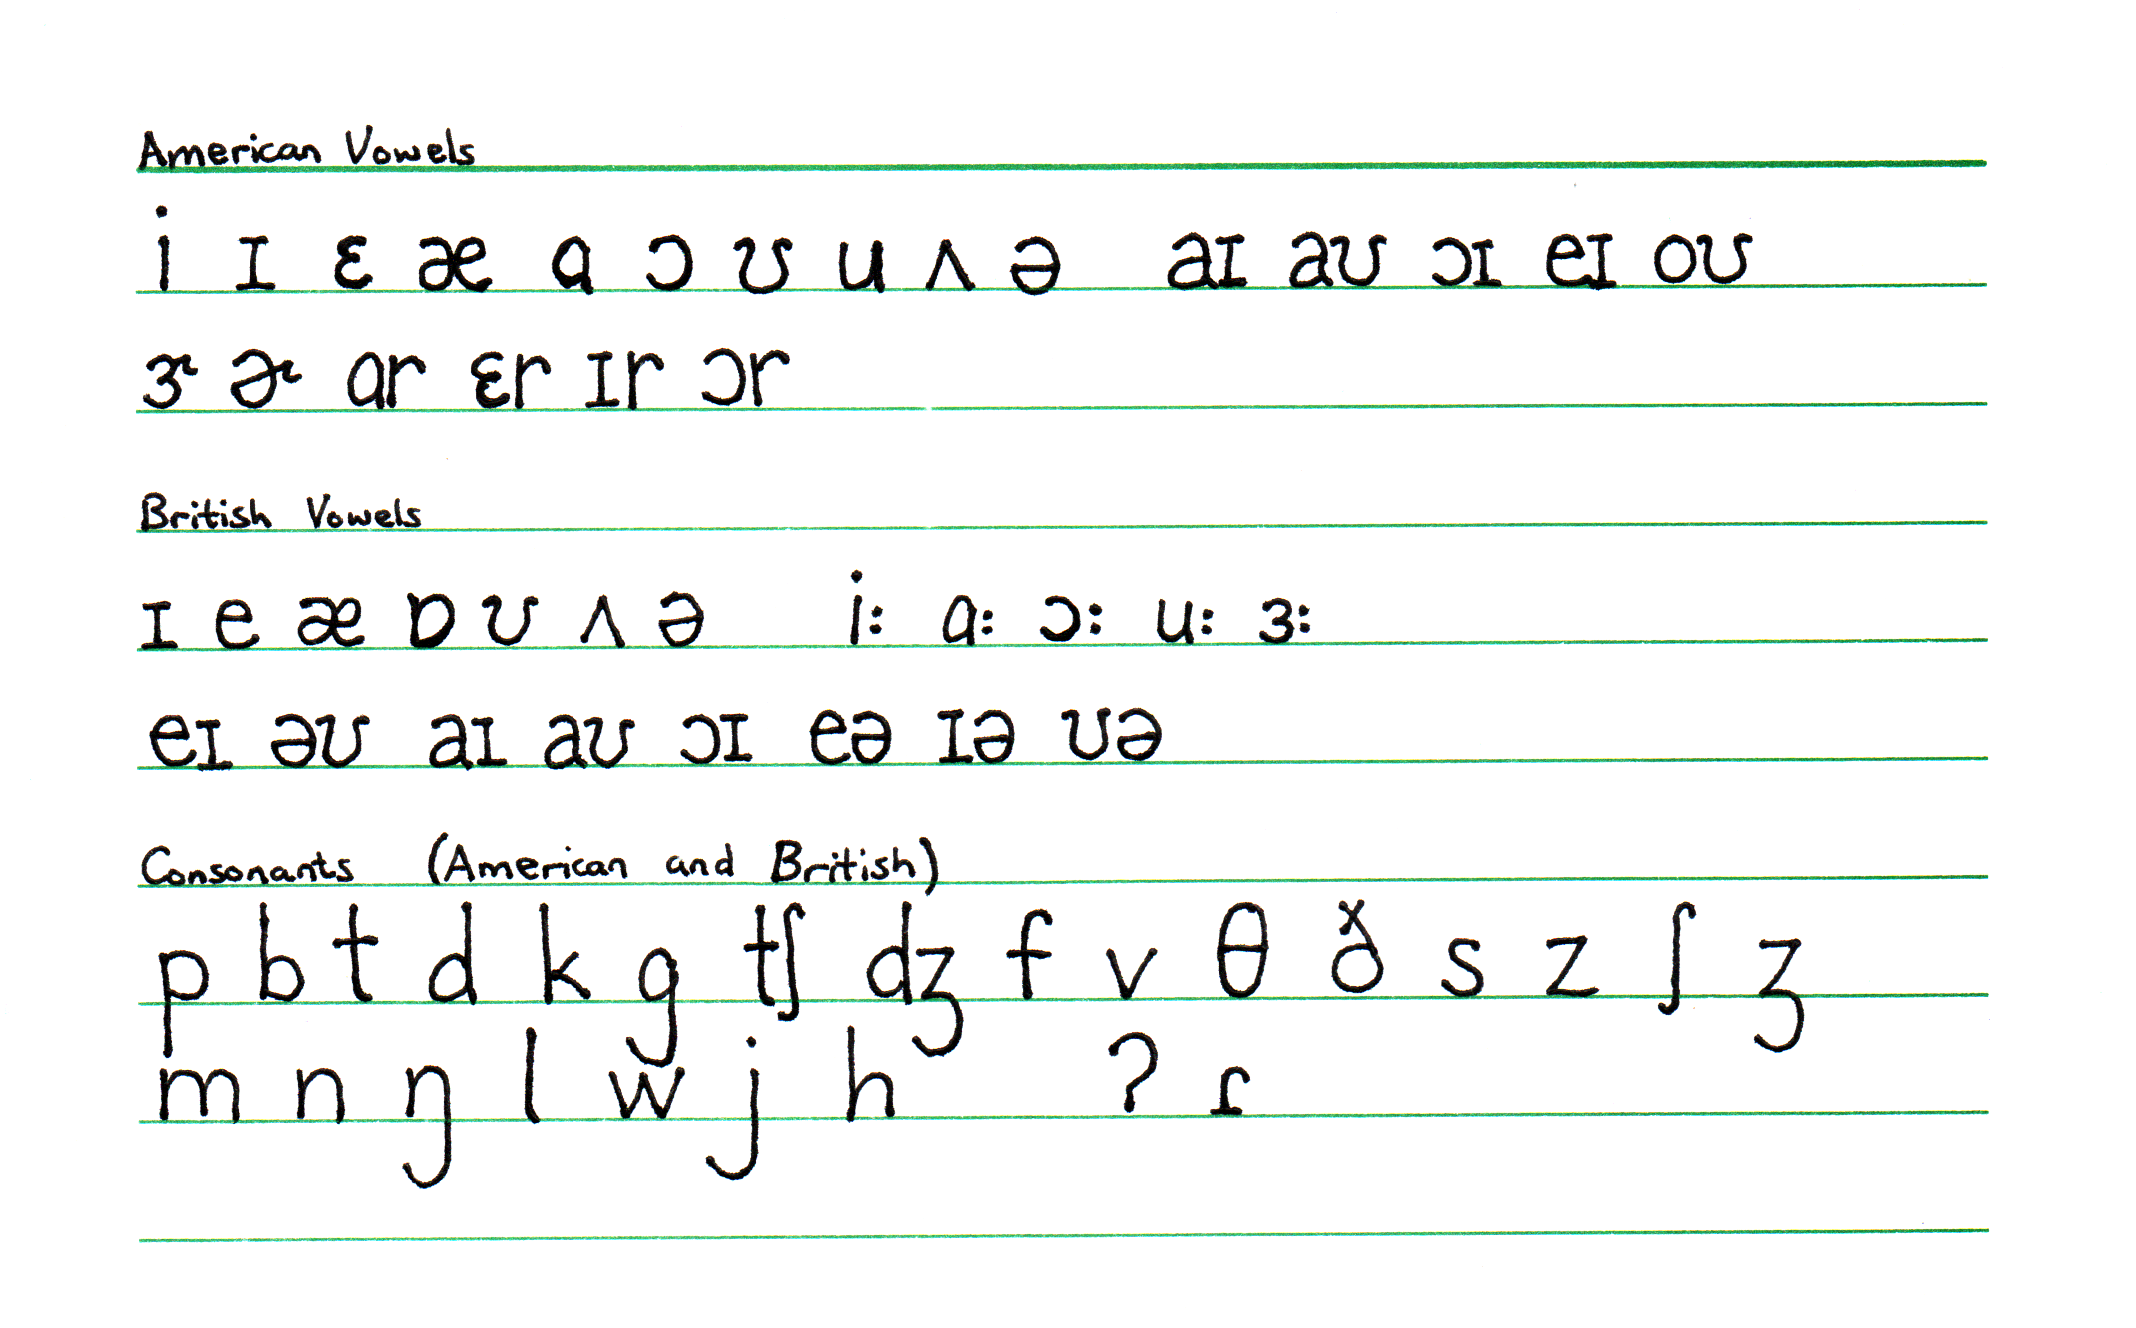 American Vowels
i ɪ ɛ æ ɑ ɔ ʊ u ʌ ə aɪ aʊ ɔɪ eɪ oʊ
ɝ ɚ ɑr ɛr ɪr ɔr
British Vowels
ɪ e æ ɒ ʊ ʌ ə i: ɑ: ɔ: u: ɜ:
eɪ əʊ aɪ aʊ ɔɪ eə ɪə ʊə
Consonants (American and British)
p b t d k g tʃ dʒ f v θ ð s z ʃ ʒ
m n ŋ l w j h ʔ ɾ